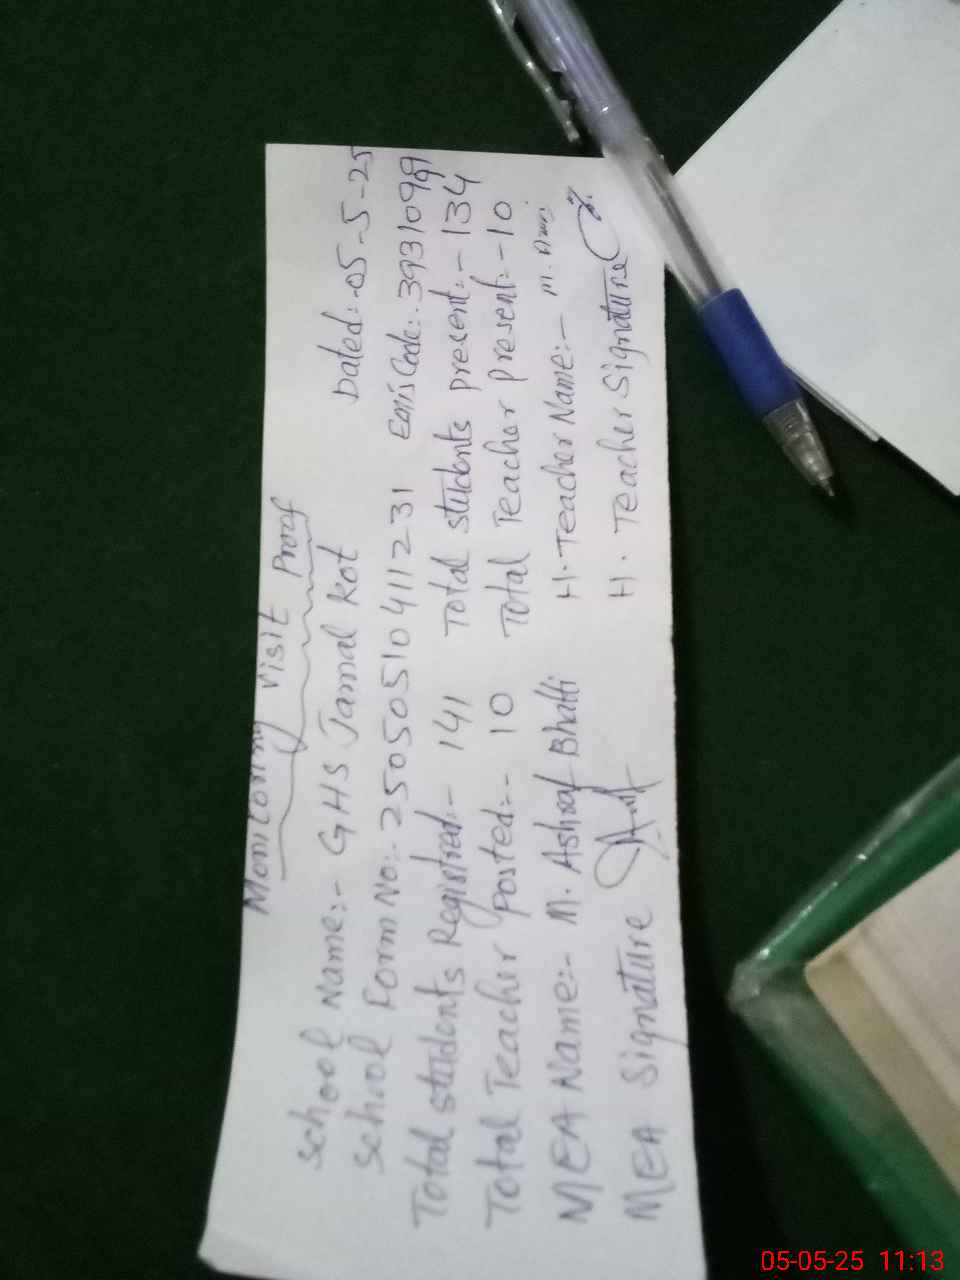 Monitoring Visit Proof
School Name:- GHS Jamal Kot Dated:-05-5-25
School Form No:- 25050510411231 Emis Code:-
Total students Registred:- 141 Total students present:- 134
Total Teacher Posted:- 10 Total Teacher present:- 10
MEA Name:- M. Ashraf Bhatti H. Teacher Name:- M.
MEA Signature H. Teacher Signature
05-05-25 11:13